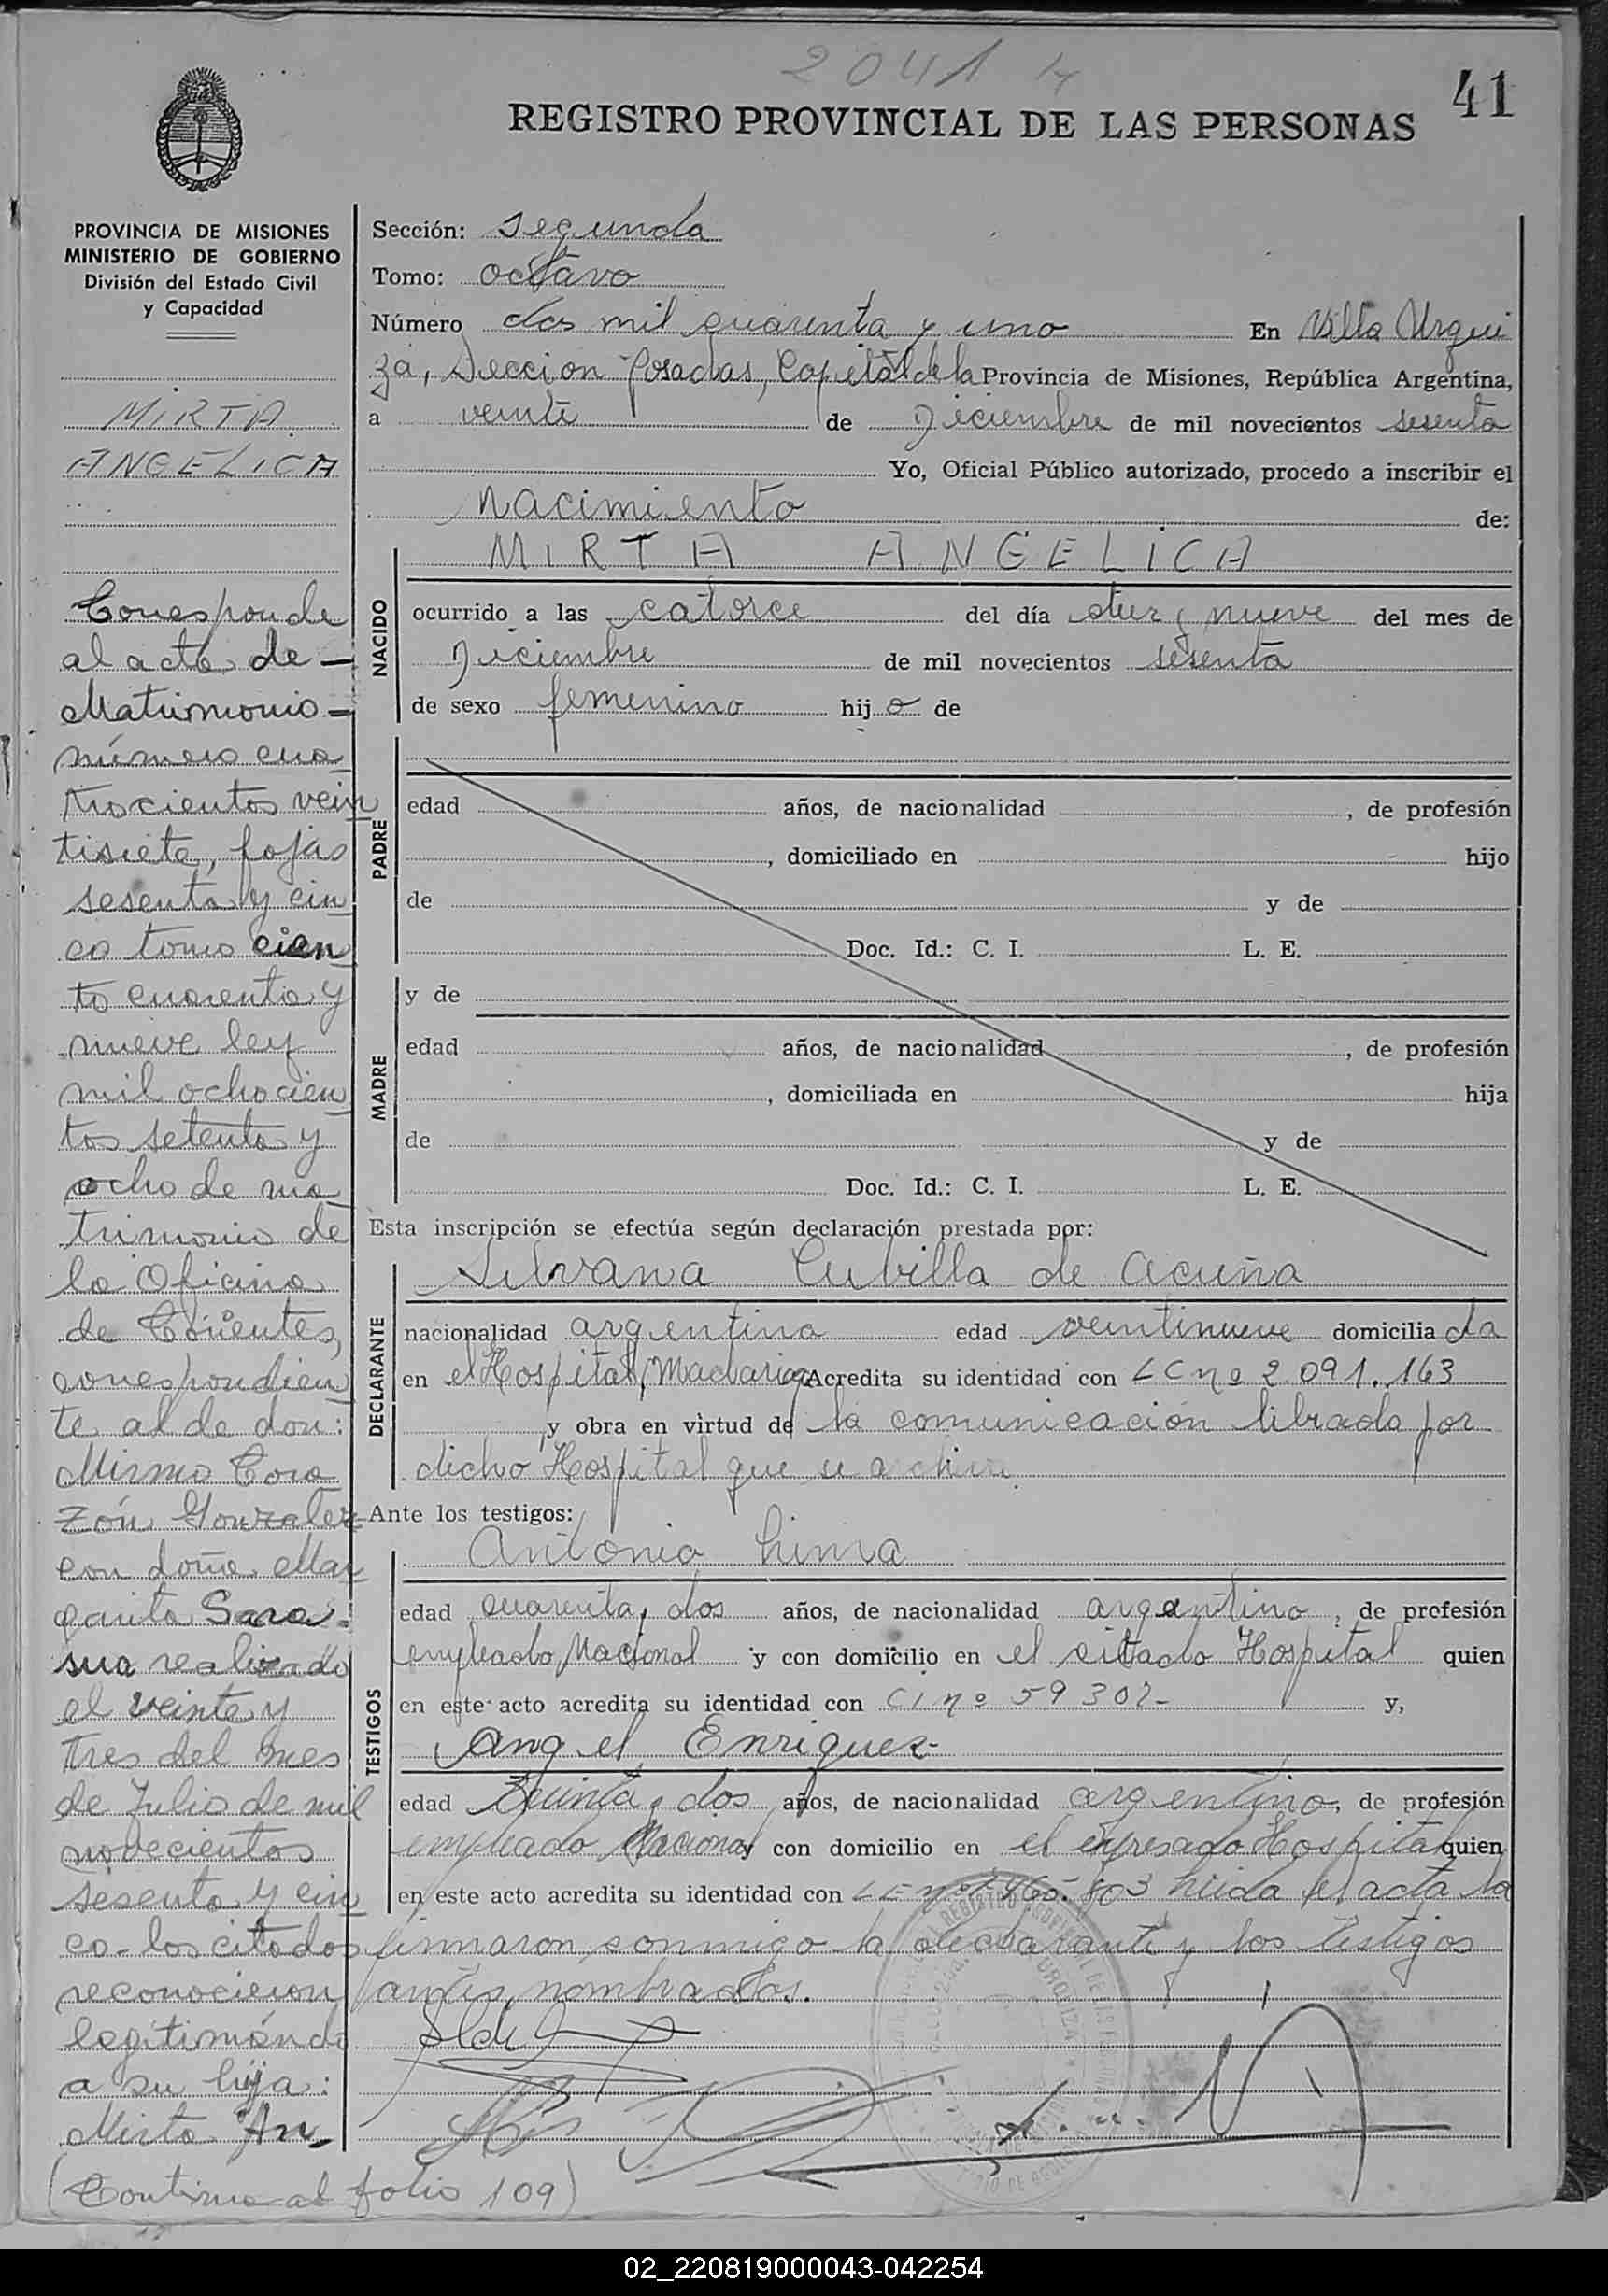 2041
41
REGISTRO PROVINCIAL DE LAS PERSONAS
PROVINCIA DE MISIONES
MINISTERIO DE GOBIERNO
División del Estado Civil
y Capacidad
MIRTA
ANGELICA
Corresponde
al acta de —
Matrimonio —
número cua
trocientos vein
tisiete, fojas
sesenta y cin
co tomo cien
to cuarenta y
nueve ley
mil ochocien
tos setenta y
ocho de ma
trimonio de
la Oficina
de Corrientes,
correspondien
te al de don:
Mismo Cora
zón Gonzalez
con doña Mar
garita Sana
sua realizado
el veinte y
tres del mes
de Julio de mil
novecientos
sesenta y cin
co - los citados
reconocieron
legitimándo
a su hija:
Mirta An-
(Continua al folio 109)
Sección: segunda
Tomo: octavo
Número dos mil cuarenta y uno En Villa Urqui
za, Sección Posadas, Capital de la Provincia de Misiones, República Argentina,
a veinte de Diciembre de mil novecientos sesenta
Yo, Oficial Público autorizado, procedo a inscribir el
nacimiento de:
NACIDO
MIRTA ANGELICA
ocurrido a las catorce del día diez y nueve del mes de
Diciembre de mil novecientos sesenta
de sexo femenino hij a de
PADRE
edad años, de nacionalidad , de profesión
, domiciliado en hijo
de y de
Doc. Id.: C. I. L. E.
MADRE
y de
edad años, de nacionalidad , de profesión
, domiciliada en hija
de y de
Doc. Id.: C. I. L. E.
Esta inscripción se efectúa según declaración prestada por:
DECLARANTE
Silvana Cubilla de Acuña
nacionalidad argentina edad veintinueve domicilia da
en el Hospital Madariaga Acredita su identidad con LC nº 2.091.163
y obra en virtud de la comunicación librada por
dicho Hospital que se archiva
Ante los testigos:
TESTIGOS
Antonio Lima
edad cuarenta y dos años, de nacionalidad argentino, de profesión
empleado Nacional y con domicilio en el citado Hospital quien
en este acto acredita su identidad con CI nº 59302- y,
Angel Enriquez-
edad treinta y dos años, de nacionalidad argentino, de profesión
empleado Nacional y con domicilio en el expresado Hospital quien
en este acto acredita su identidad con LE nº 465.803 leída el acta la
firmaron conmigo la declarante y los testigos
antes nombrados.
02_220819000043-042254